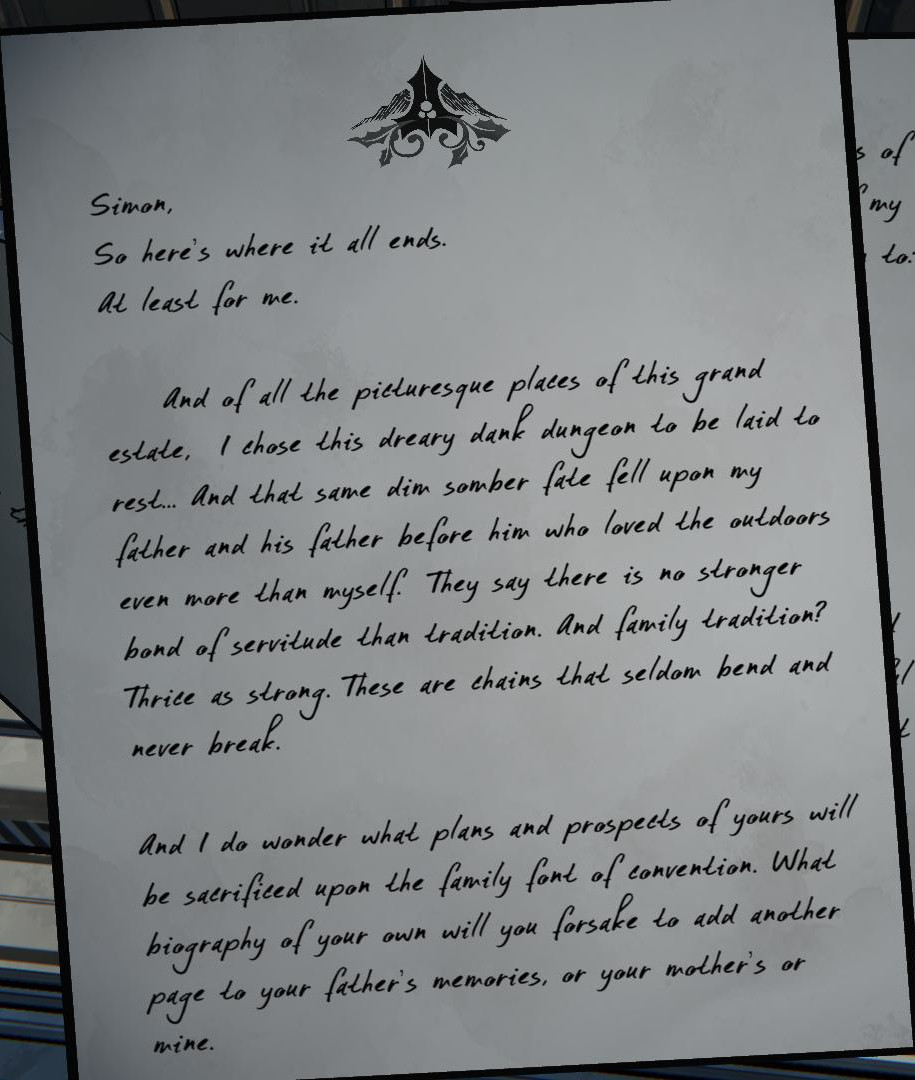 Simon,
So here's where it all ends.
At least for me.
And of all the picturesque places of this grand
estate, I chose this dreary dank dungeon to be laid to
rest... And that same dim somber fate fell upon my
father and his father before him who loved the outdoors
even more than myself. They say there is no stronger
bond of servitude than tradition. And family tradition?
Thrice as strong. These are chains that seldom bend and
never break.
And I do wonder what plans and prospects of yours will
be sacrificed upon the family font of convention. What
biography of your own will you forsake to add another
page to your father's memories, or your mother's or
mine.
of
my
to: